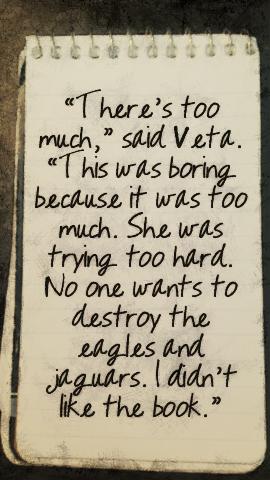 “There’s too
much,” said Veta.
“This was boring
because it was too
much. She was
trying too hard.
No one wants to
destroy the
eagles and
jaguars. I didn’t
like the book.”